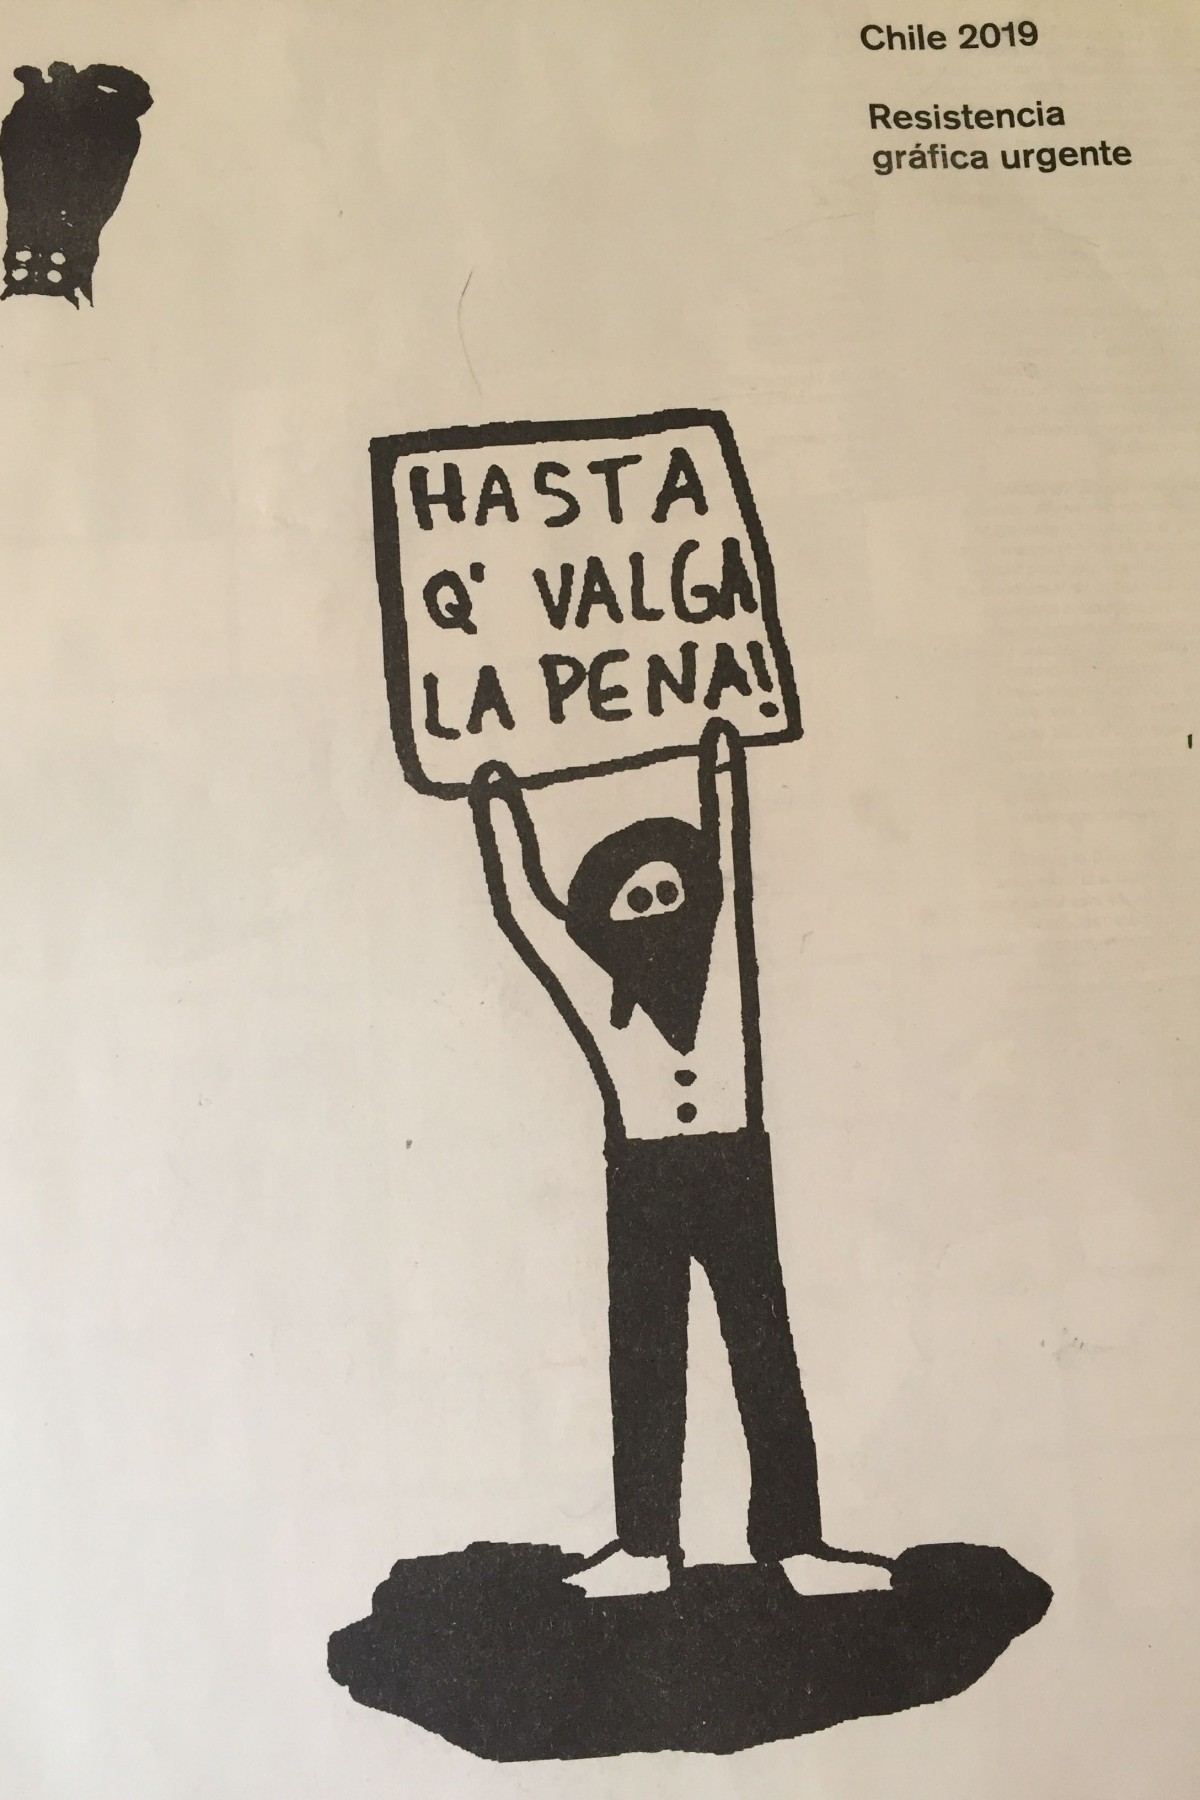 Chile 2019
Resistencia
gráfica urgente
HASTA
Q' VALGA
LA PENA!